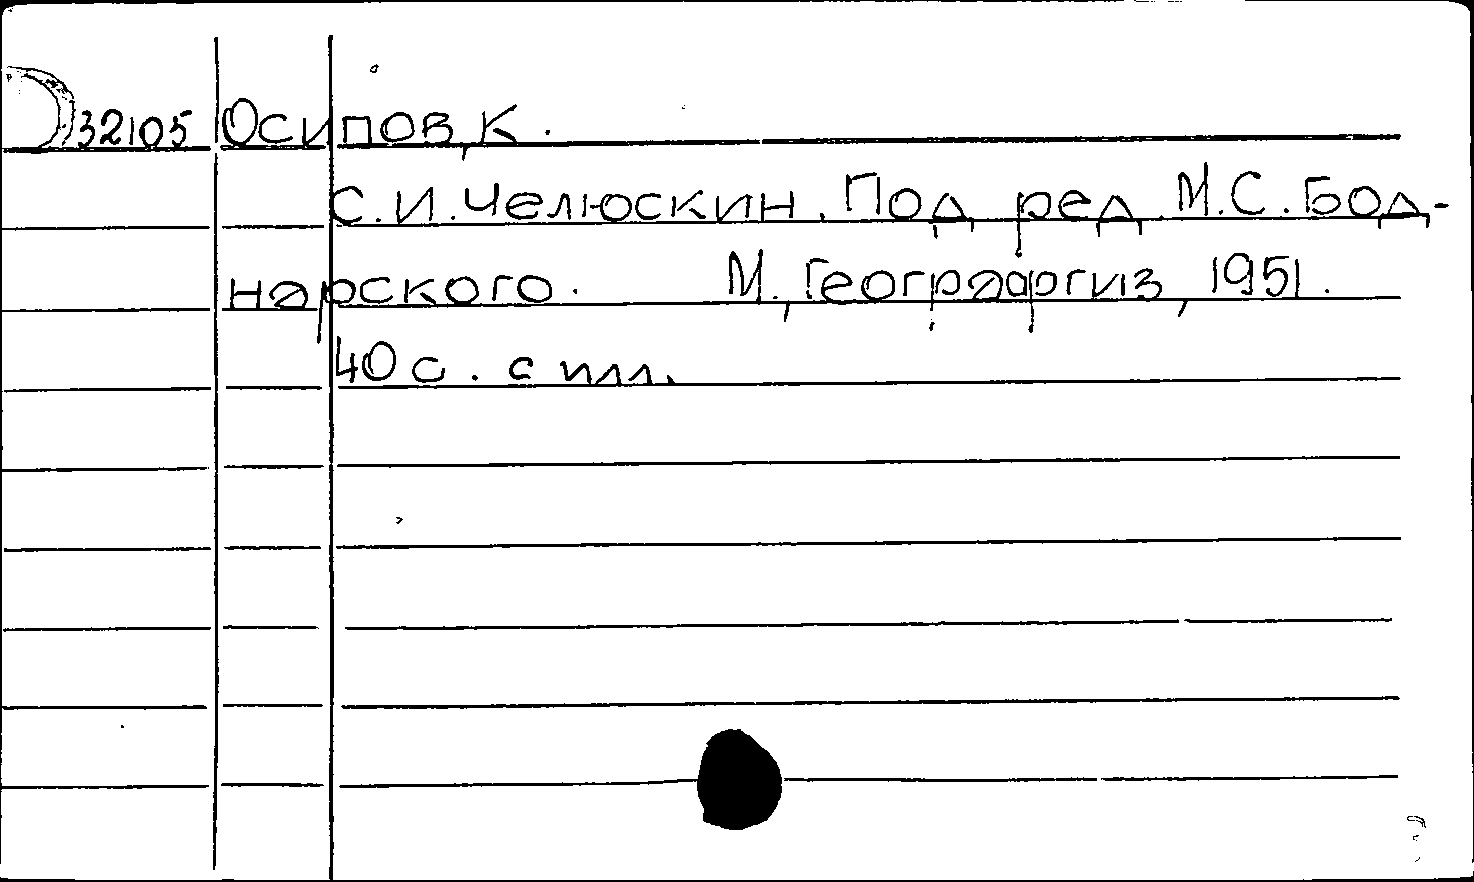 32105 Осипов, К.
С.И. Челюскин. Под ред М.С. Бод-
нарского. М., Географгиз, 1951.
40 с. с илл.